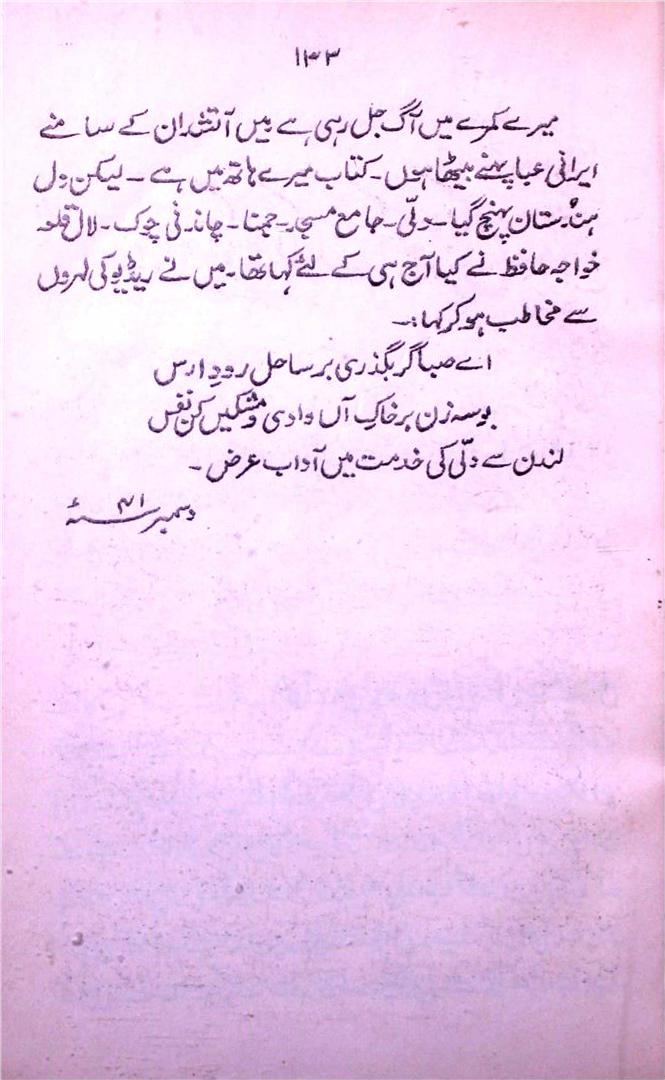 ۱۳۳
میرے کمرے میں آگ جل رہی ہے میں آتشدان کے سامنے
ایرانی عبا پہنے بیٹھا ہوں۔ کتاب میرے ہاتھ میں ہے ۔ لیکن دل
ہندُستان پہنچ گیا۔ دلّی۔ جامع مسجد۔ جمنا۔ چاندنی چوک۔ لال قلعہ
خواجہ حافظ نے کیا آج ہی کے لئے کہا تھا۔ میں نے ریڈیو کی لہروں
سے مخاطب ہو کر کہا:۔
اے صبا گر بگذری بر ساحل رودِ ارس
بوسہ زن بر خاکِ آں وادی و مشکیں کن نفس
لندن سے دلّی کی خدمت میں آداب عرض ۔
دسمبر ۴۱ سنہء